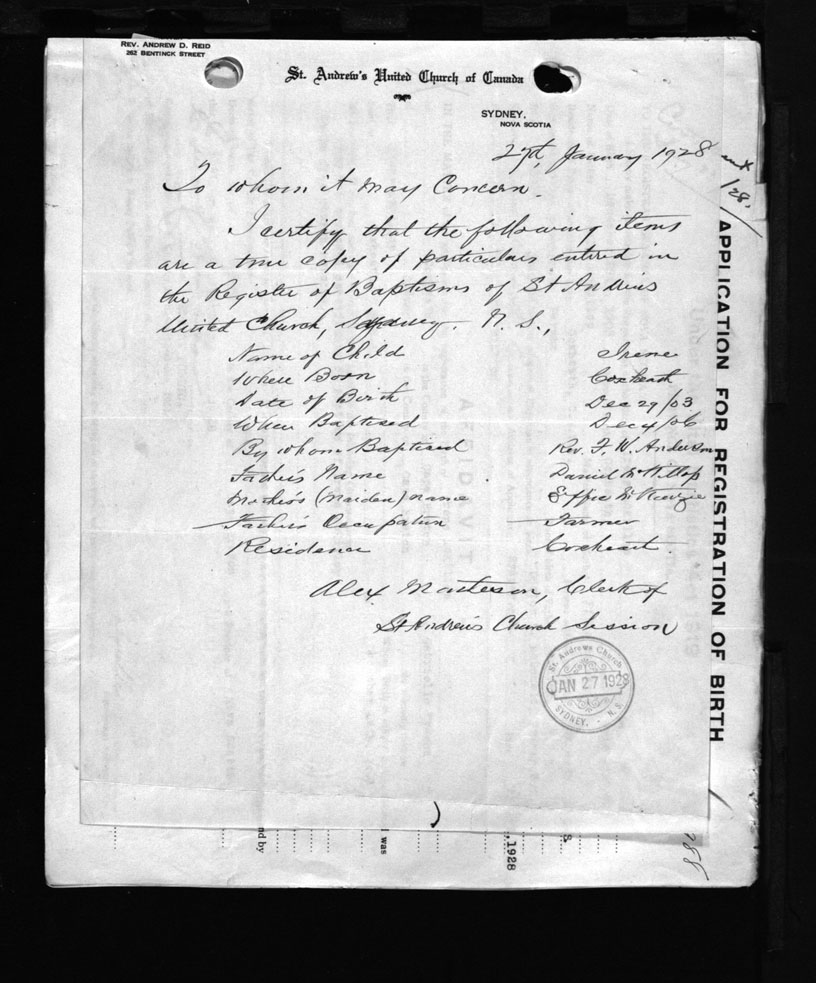 REV. ANDREW D. REID
262 BENTINCK STREET
St. Andrew's United Church of Canada
SYDNEY,
NOVA SCOTIA
27th, January 1928
To whom it may Concern.
I certify that the following items
are a true copy of particulars entered in
the Register of Baptisms of St Andrews
United Church, Sydney. N. S.,
Name of Child Irene
Where Born Coxheath
Date of Birth Dec 29/03
When Baptised Dec 4/06
By whom Baptised Rev. F. W. Anderson
Father's Name Daniel McKillop
Mother's (Maiden) name Effie McKenzie
Father's Occupation Farmer
Residence Coxheart.
Alex Masterson, Clerk of
St Andrew's Church Session
St. Andrews Church
JAN 27 1928
SYDNEY, N. S.
APPLICATION FOR REGISTRATION OF BIRTH
/28'
nd by
I was
,1928
S.
288